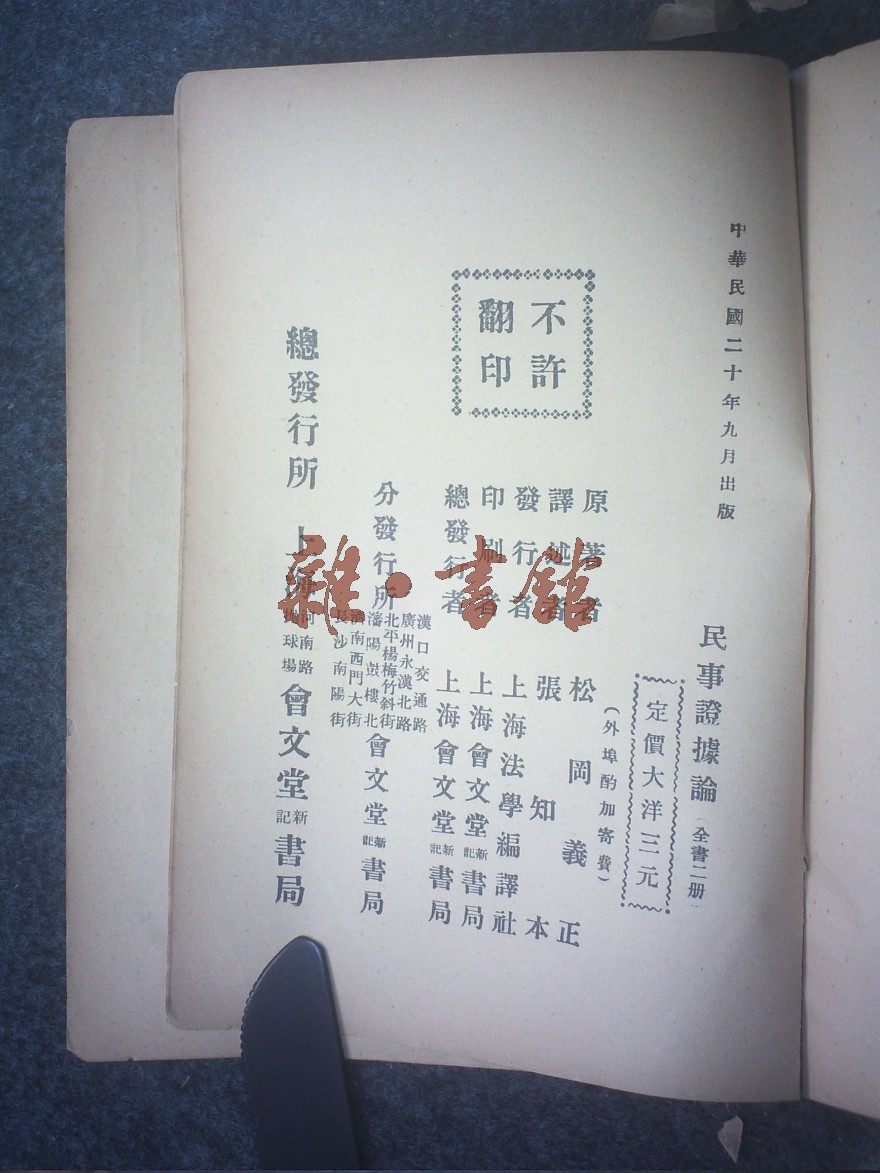 中華民國二十年九月出版
民事證據論 全書二册
定價大洋三元
(外埠酌加寄費)
不許
翻印
原著者 松岡義正
譯述者 張知本
發行者 上海法學編譯社
印刷者 上海會文堂新記書局
總發行者 上海會文堂新記書局
分發行所
漢口交通路
廣州永漢北路
北平楊梅竹斜街
瀋陽鼓樓北
濟南西門大街
長沙南陽街
會文堂新記書局
總發行所 上海
河南路
拋球場
會文堂新記書局
雜·書館